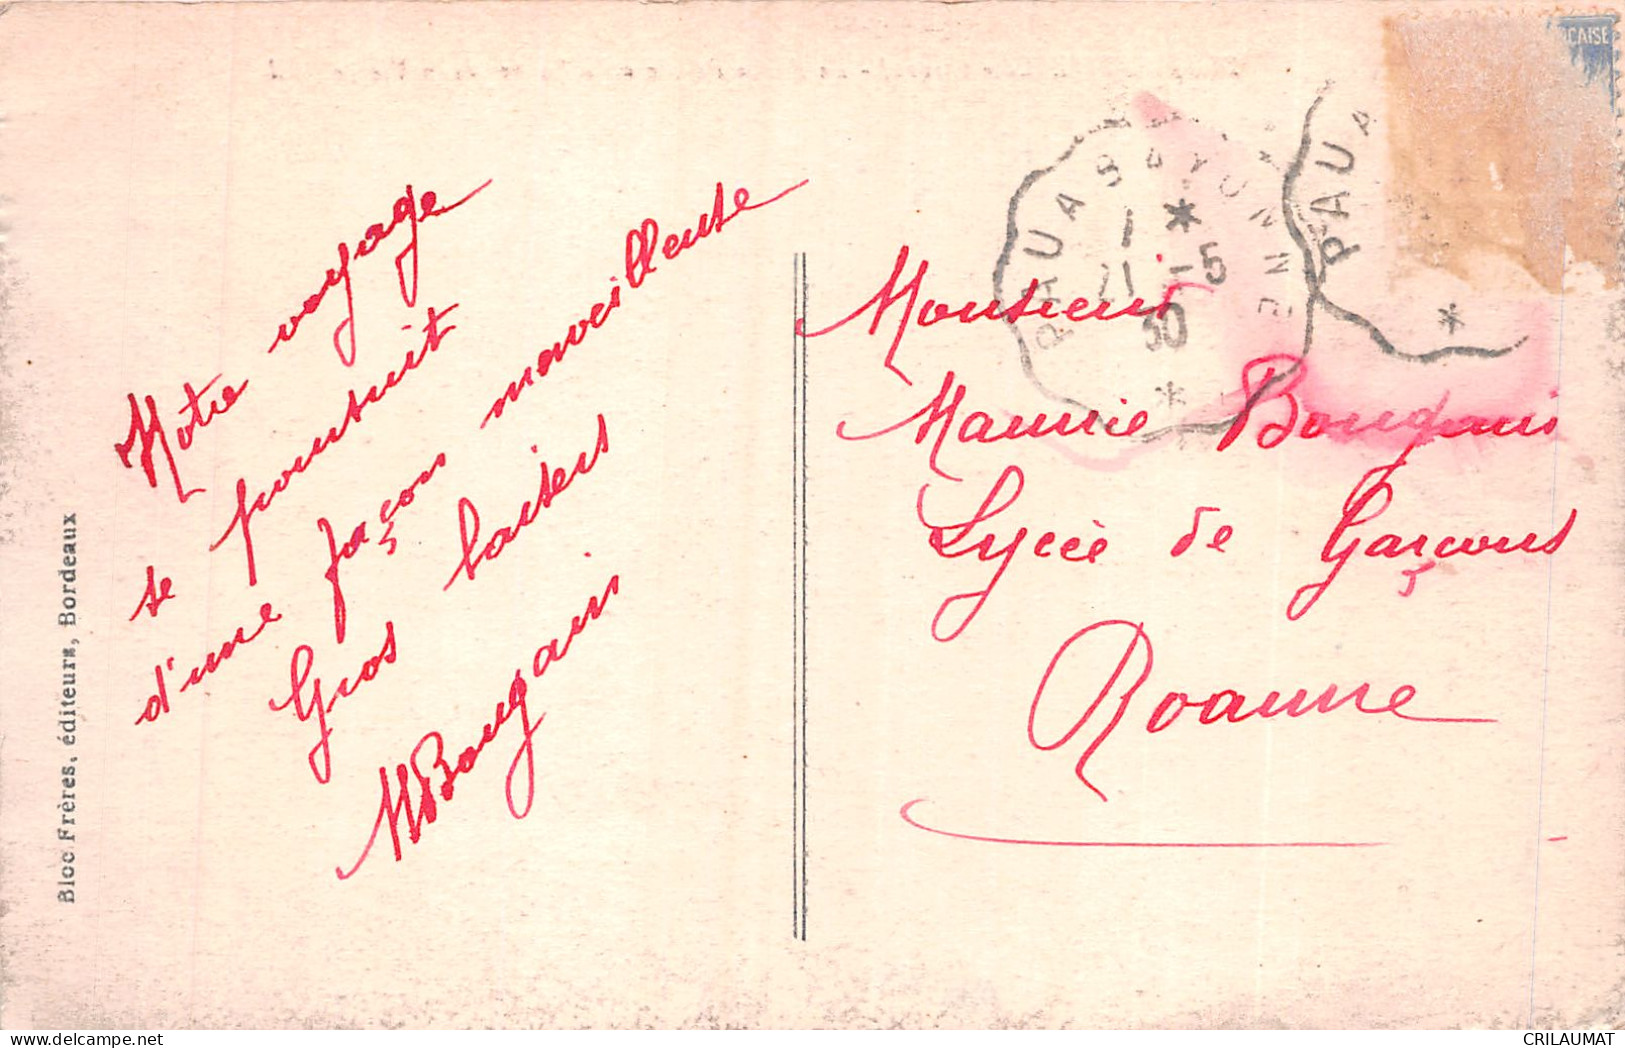 Notre voyage
se poursuit
d'une façon merveilleuse
Gros baisers
M Bougain
Bloc Frères, éditeurs, Bordeaux
CAISE
PAU A BAYONNE
1 *
21 -5
30
*
PAU A
*
Monsieur
Maurice Bougain
Lycée de Garçons
Roanne
delcampe.net
CRILAUMAT